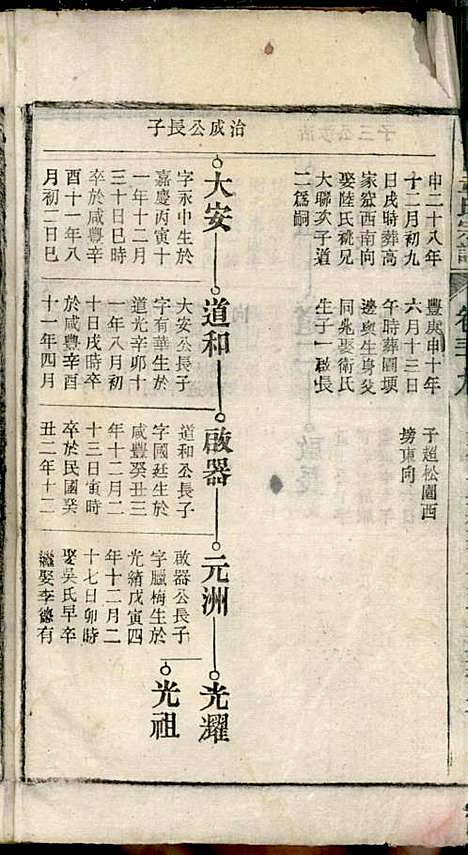 申二十八年
十二月初九
日戌時葬高
家嶽西南向
娶陸氏祧兄
大聯次子道
二爲嗣
豐庚申十年
六月十三日
午時葬圓埂
邊與生身父
同兆娶衛氏
生子一啟長
子超松園西
塝東向
治成公長子
大安
字永中生於
嘉慶丙寅十
一年十二月
三十日巳時
卒於咸豐辛
酉十一年八
月初二日巳
道和
大安公長子
字有華生於
道光辛卯十
一年八月初
十日戌時卒
於咸豐辛酉
十一年四月
啟器
道和公長子
字國廷生於
咸豐癸丑三
年十二月二
十三日寅時
卒於民國癸
丑二年十二
元洲
啟器公長子
字臘梅生於
光緒戊寅四
年十二月二
十七日卯時
娶吳氏早卒
繼娶李德有
光耀
光祖